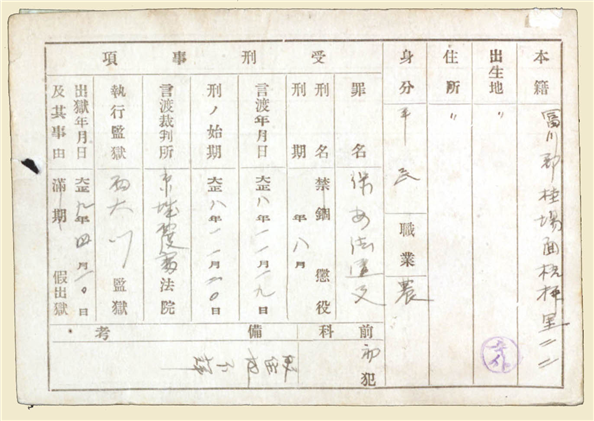 本籍 富川郡桂
出生地 〃
住所 〃
身分 平民 職業 農
受刑事項
罪名 保安法違反
刑名 禁錮 懲役
刑期 年八月
言渡年月日 大正八年一一月 九日
刑ノ始期 大正八年一一月 〇日
言渡裁判所 京城覆審法院
執行監獄 西大門監獄
出獄年月日及其事由 大正九年四月 〇日 滿期 假出獄
前科 初犯
備考